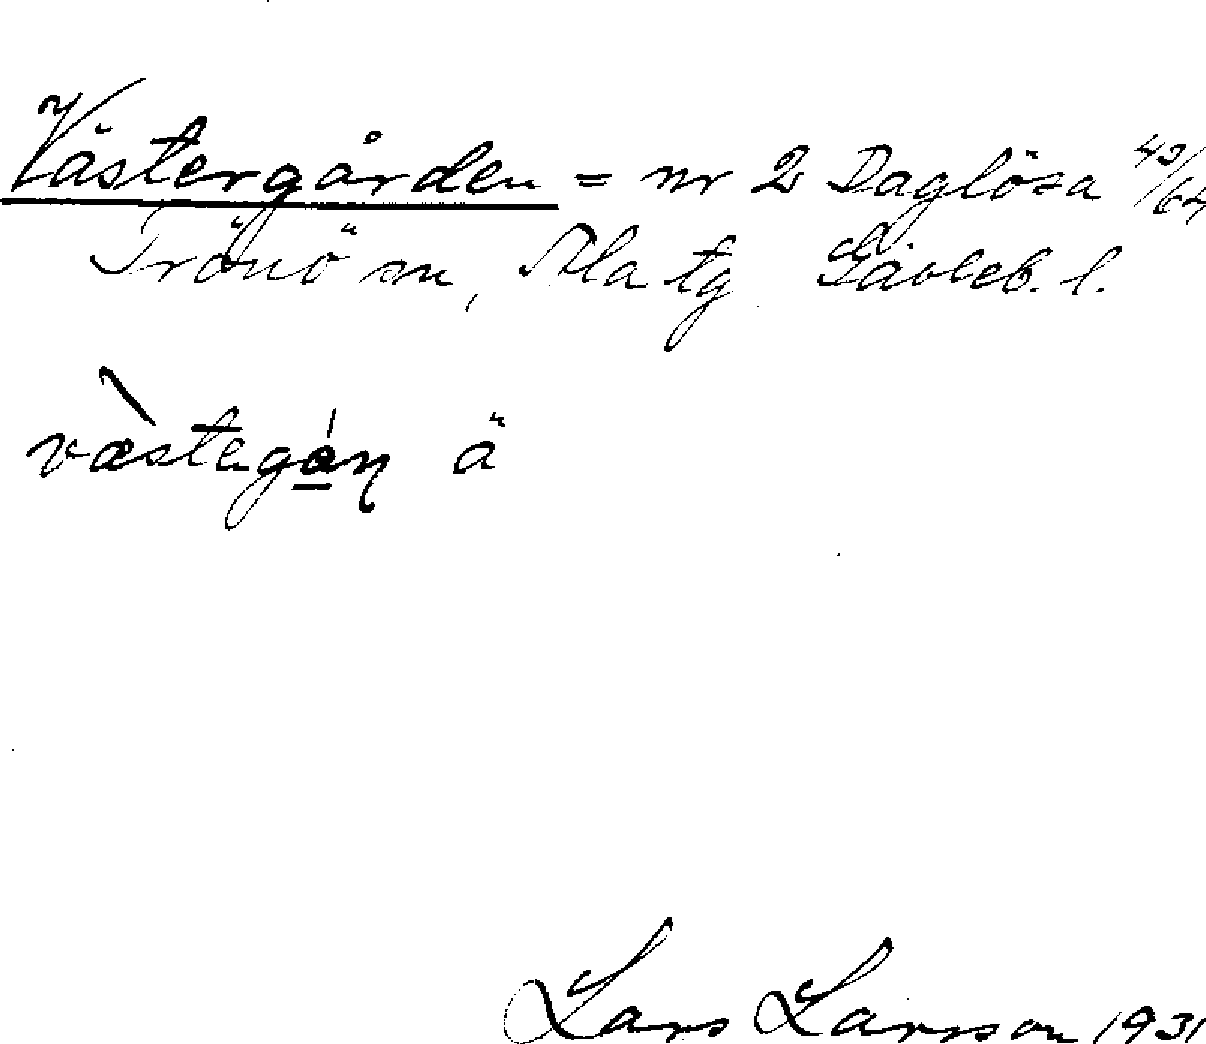 Västergården = nr 2 Daglösa 43/64
Trönö sn, Ala tg Gävleb. l.
væstagán ä
Lars Larsson 1931